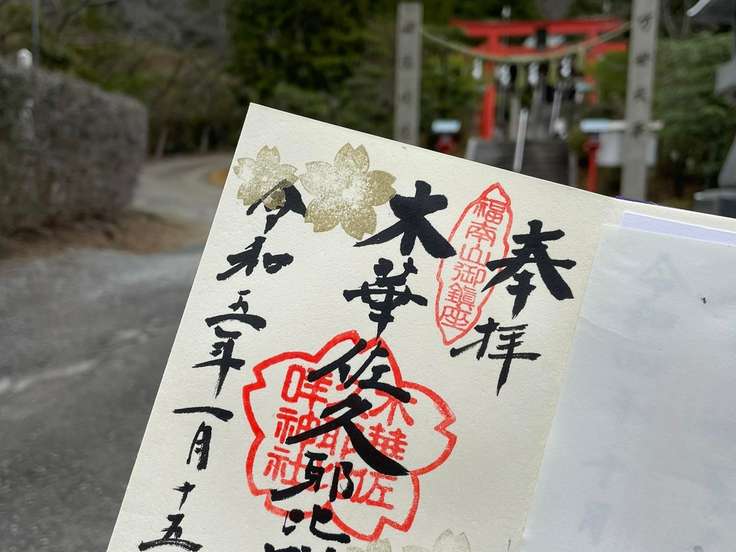 奉拝
福南山御鎮座
木華佐久耶比
木華佐
咩神社
令和五年一月十五